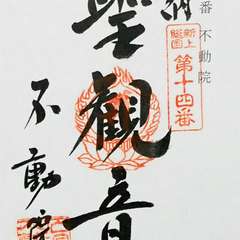 番 不動院
納
新上
総国
第十四番
聖観音
不動院